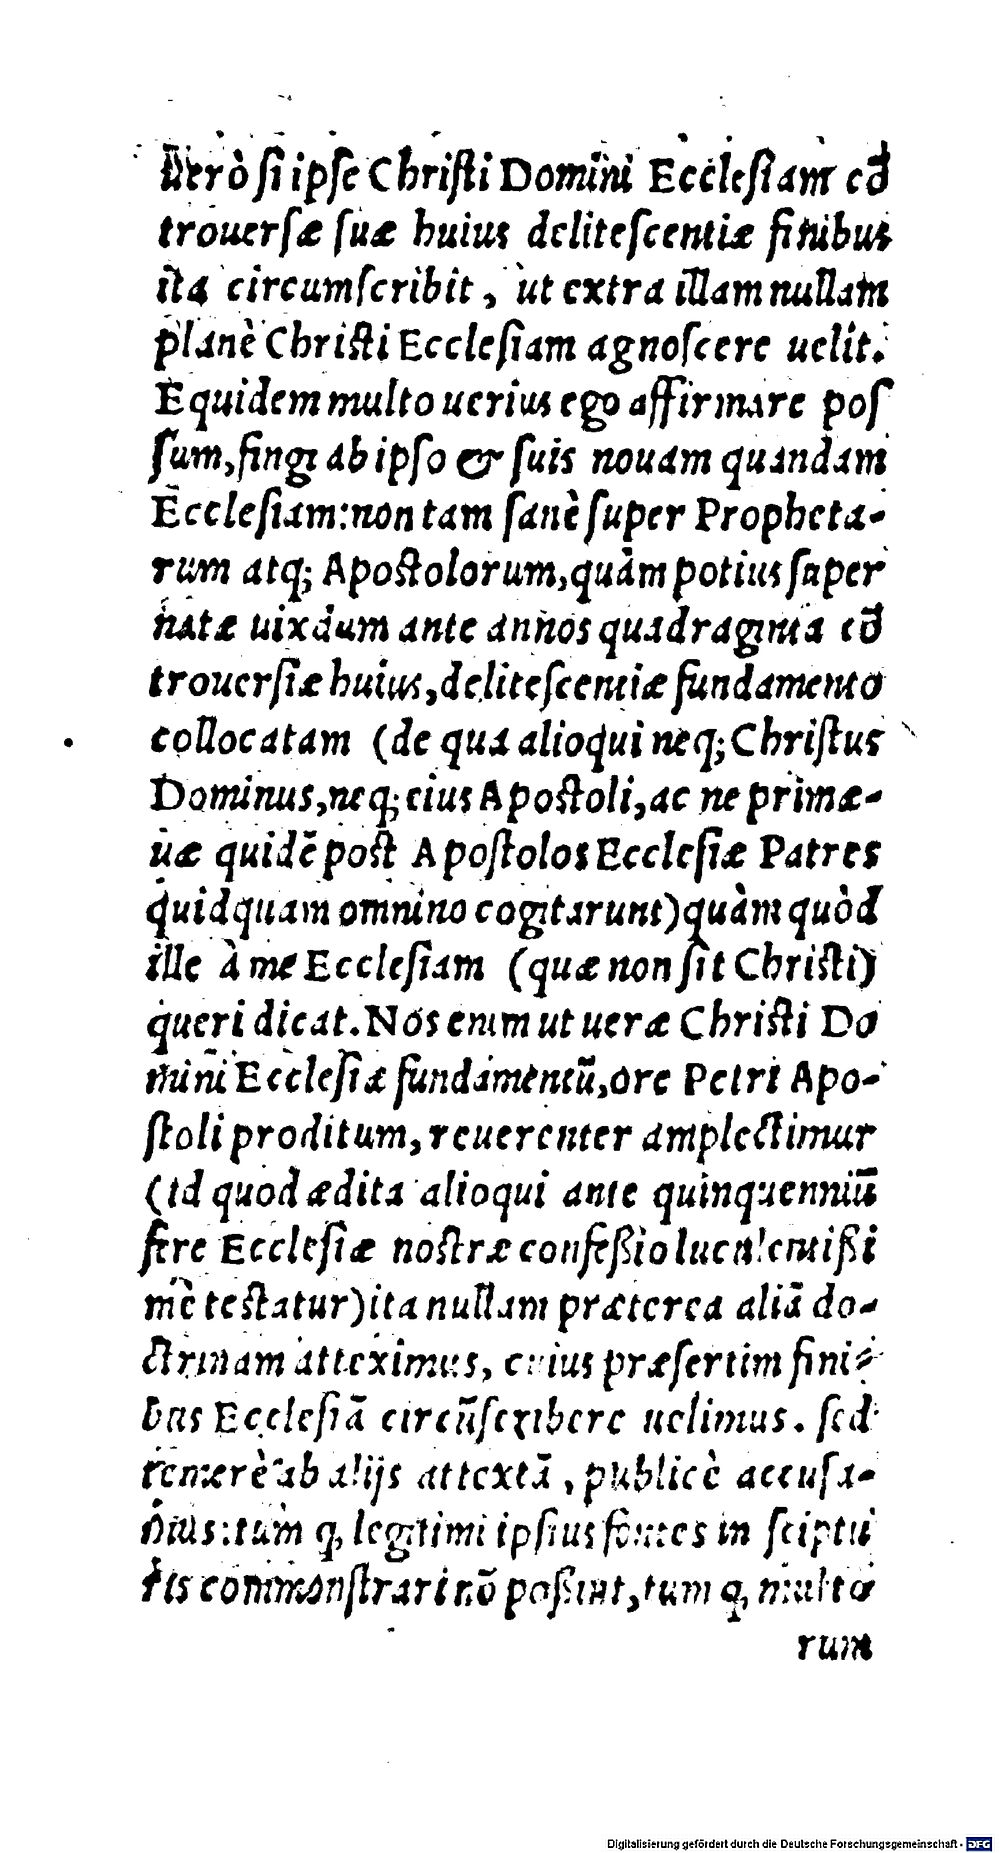 Verò ſi ipſe Chriſti Domini Eccleſiam cõ
trouerſæ ſuæ huius deliteſcentiæ finibus
ita circumſcribit, ut extra illam nullam
planè Chriſti Eccleſiam agnoſcere uelit.
Equidem multo uerius ego affirmare poſ
ſum, fingi ab ipſo & ſuis nouam quandam
Eccleſiam: non tam ſanè ſuper Propheta-
rum atq; Apoſtolorum, quàm potius ſuper
natæ uixdum ante annos quadraginta cõ
trouerſiæ huius, deliteſcentiæ fundamento
collocatam (de qua alioqui neq; Chriſtus
Dominus, neq; eius Apoſtoli, ac ne primæ-
uæ quidẽ poſt Apoſtolos Eccleſiæ Patres
quidquam omnino cogitarunt) quàm quòd
ille à me Eccleſiam (quæ non ſit Chriſti)
queri dicat. Nos enim ut ueræ Chriſti Do
mini Eccleſiæ fundamentũ, ore Petri Apo-
ſtoli proditum, reuerenter amplectimur
(id quod ædita alioqui ante quinquenniũ
fere Eccleſiæ noſtræ confeßio luculentißi
mè teſtatur) ita nullam præterea aliã do-
ctrinam atteximus, cuius præſertim fini-
bus Eccleſiã circũſcribere uelimus. ſed
temerè ab alijs attextã, publicè accuſa-
mus: tum q, legitimi ipſius fontes in ſciptu
ris commonſtrari nõ poßint, tum q, multo
rum
Digitalisierung gefördert durch die Deutsche Forschungsgemeinschaft - DFG